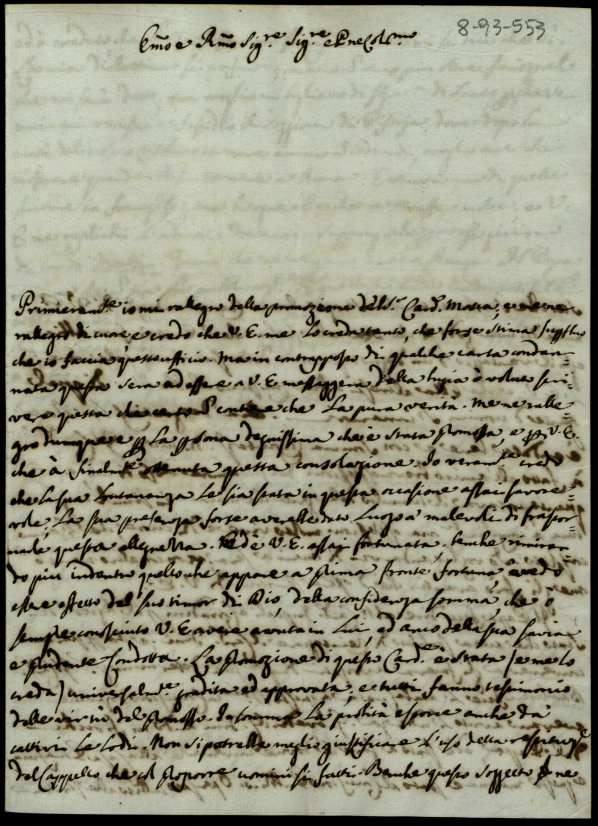 8-93-553
Em̃o e Rm̃o Sig.re Sig.re e Pne Col.mo
Primieram.te io mi rallegro della promozione del S.r Card. Mosca, e me ne
rallegro di cuore, e credo che V. E. me lo creda tanto, che forse stima
che io faccia quest'ufficio. Ma in contrapposto di qualche carta condan=
nata questa sera ad essere a V. E. messaggera della bugia ò voluto scri=
vere questa che certo contiene che la pura verità. Me ne ralle=
gro dunque e p la persona degnissima che è stata promossa, e p V. E.
che à finalm.te ottenuta questa consolazione. Io veram.te credo
che la sua lontananza le sia stata in questa occasione assai favore=
vole. La sua presenza forse averebbe dato luogo a malevoli di frastor=
narle questa allegrezza. V. E. assai fortunata, benche rimiran=
do più indentro quello che appare a prima fronte fortuna, credo
essere effetto del suo timor di Dio, della confidenza somma, che ò
sempre conosciuto V. E. avere avuta in Lui, ed anco della sua savia
e prudente condotta. La promozione di questo Card.e è stata (e me lo
creda) universalm.te gradita ed approvata, e tutti fanno testimonio
delle virtù del promosso. In somma la probità esporre anche da
cattivi le lodi. Non si potrebbe meglio giustificare l'uso della
del Cappello che il proporre uomini sì fatti. Benche questo soggetto ne